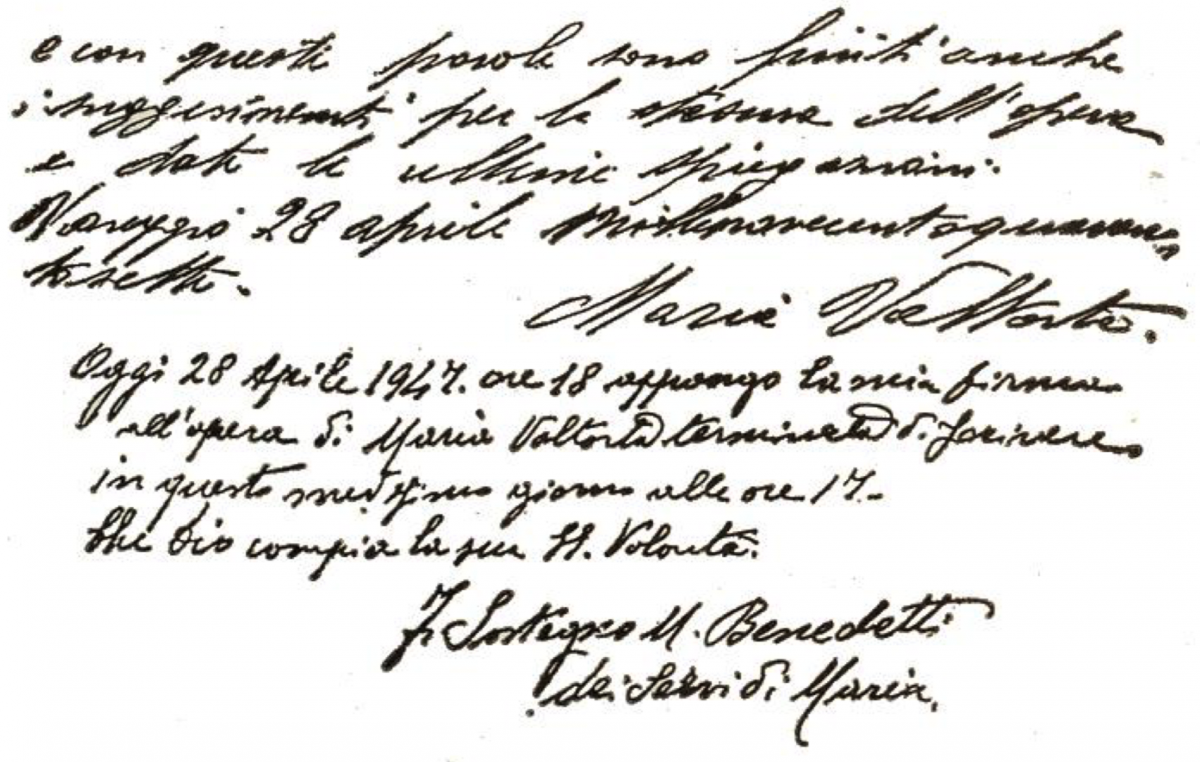 e con queste parole sono finiti anche
i suggerimenti per la stesura dell'opera
e date le ultime spiegazioni.
Viareggio 28 aprile millenovecentoquaran
tasette.
Maria Valtorta.
Oggi 28 Aprile 1947. ore 18 appongo la mia firma
all'opera di Maria Valtorta terminata di scrivere
in questo medesimo giorno alle ore 17.
Che Dio compia la sua SS. Volontà.
Fr Sostegno M. Benedetti
dei Servi di Maria.